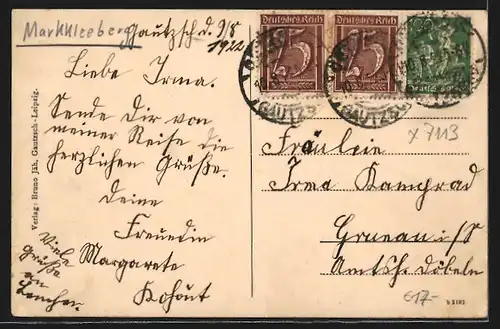 Markkleeberg
Gautzsch d. 9/8
1922
Liebe Irma.
Sende Dir von
meiner Reise die
herzlichen Grüße.
Deine
Freundin
Margarete
Kohout
Viele
Grüße
an
Verlag: Bruno Jäh, Gautzsch-Leipzig.
Deutsches Reich
75
Deutsches Reich
75
Deutsches
GAUTZSCH
GAUTZSCH
x 7113
Fräulein
Irma Kamprad
Grunau i/S
Amtsh. Döbeln
€17-